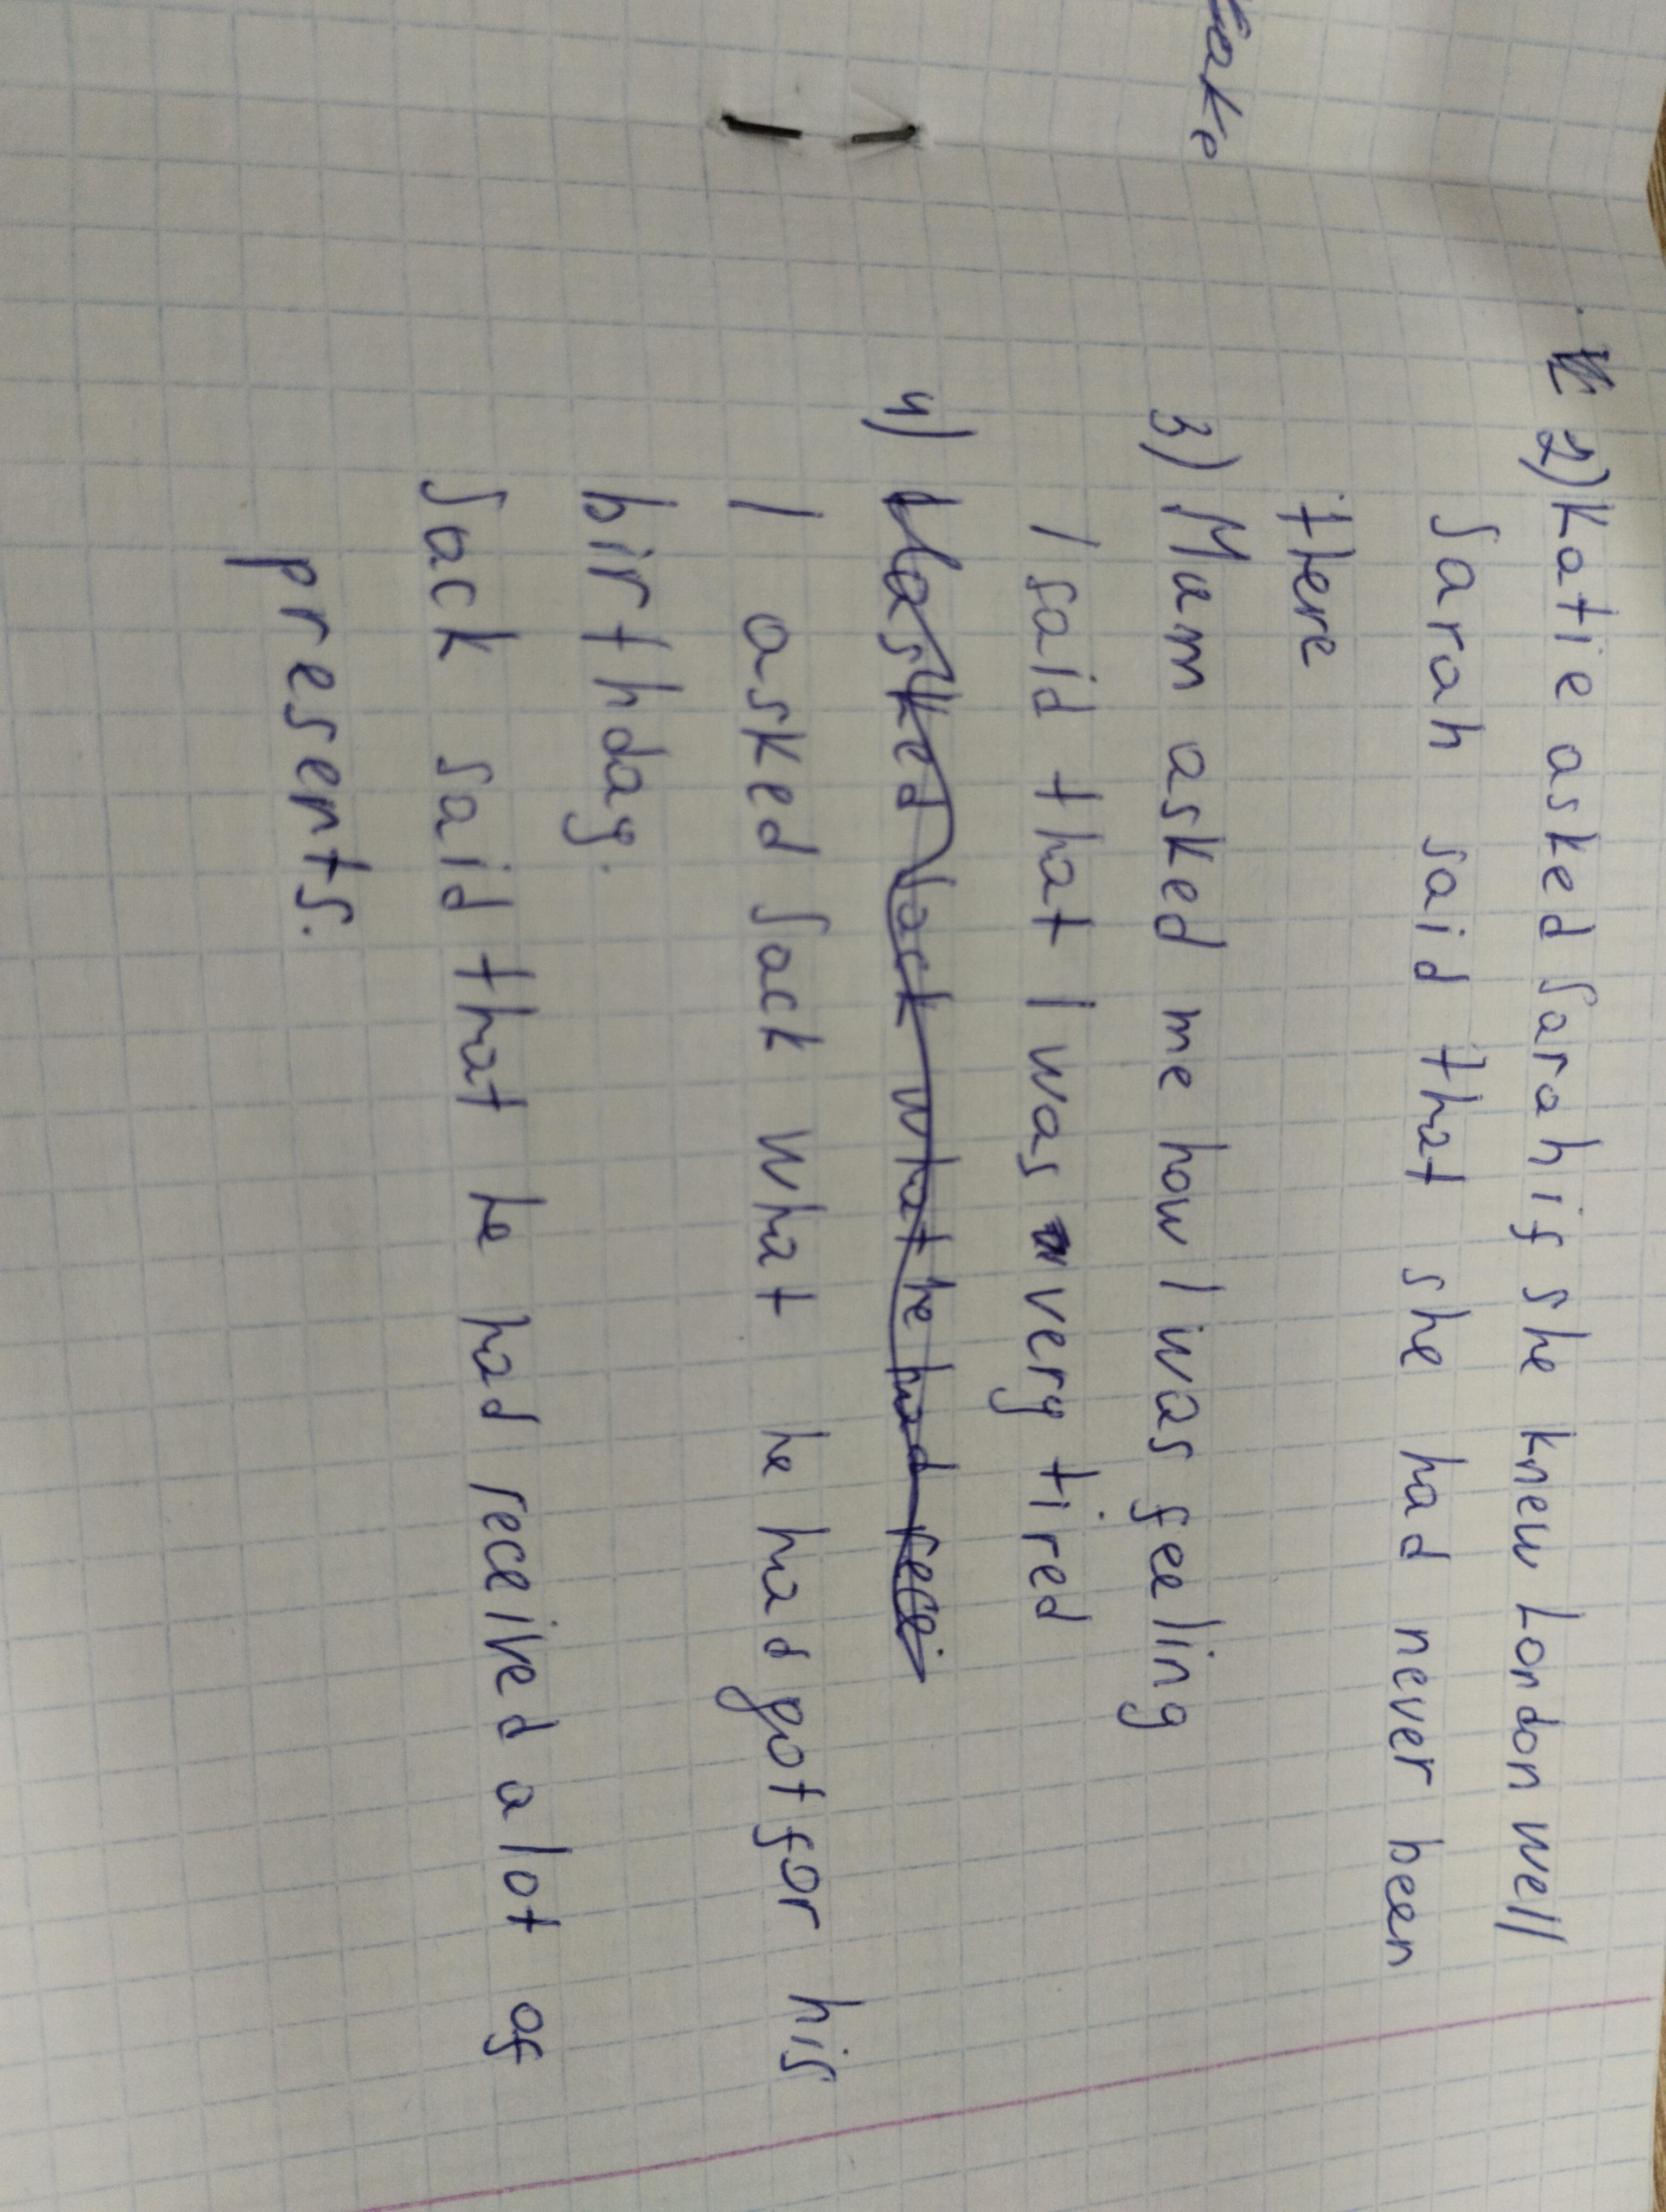 2) Katie asked Sarah if she knew London well
Sarah said that she had never been
there
3) Mum asked me how I was feeling
I said that I was very tired
4) I asked Jack what he had recei
I asked Jack what he had got for his
birthday.
Jack said that he had received a lot of
presents.